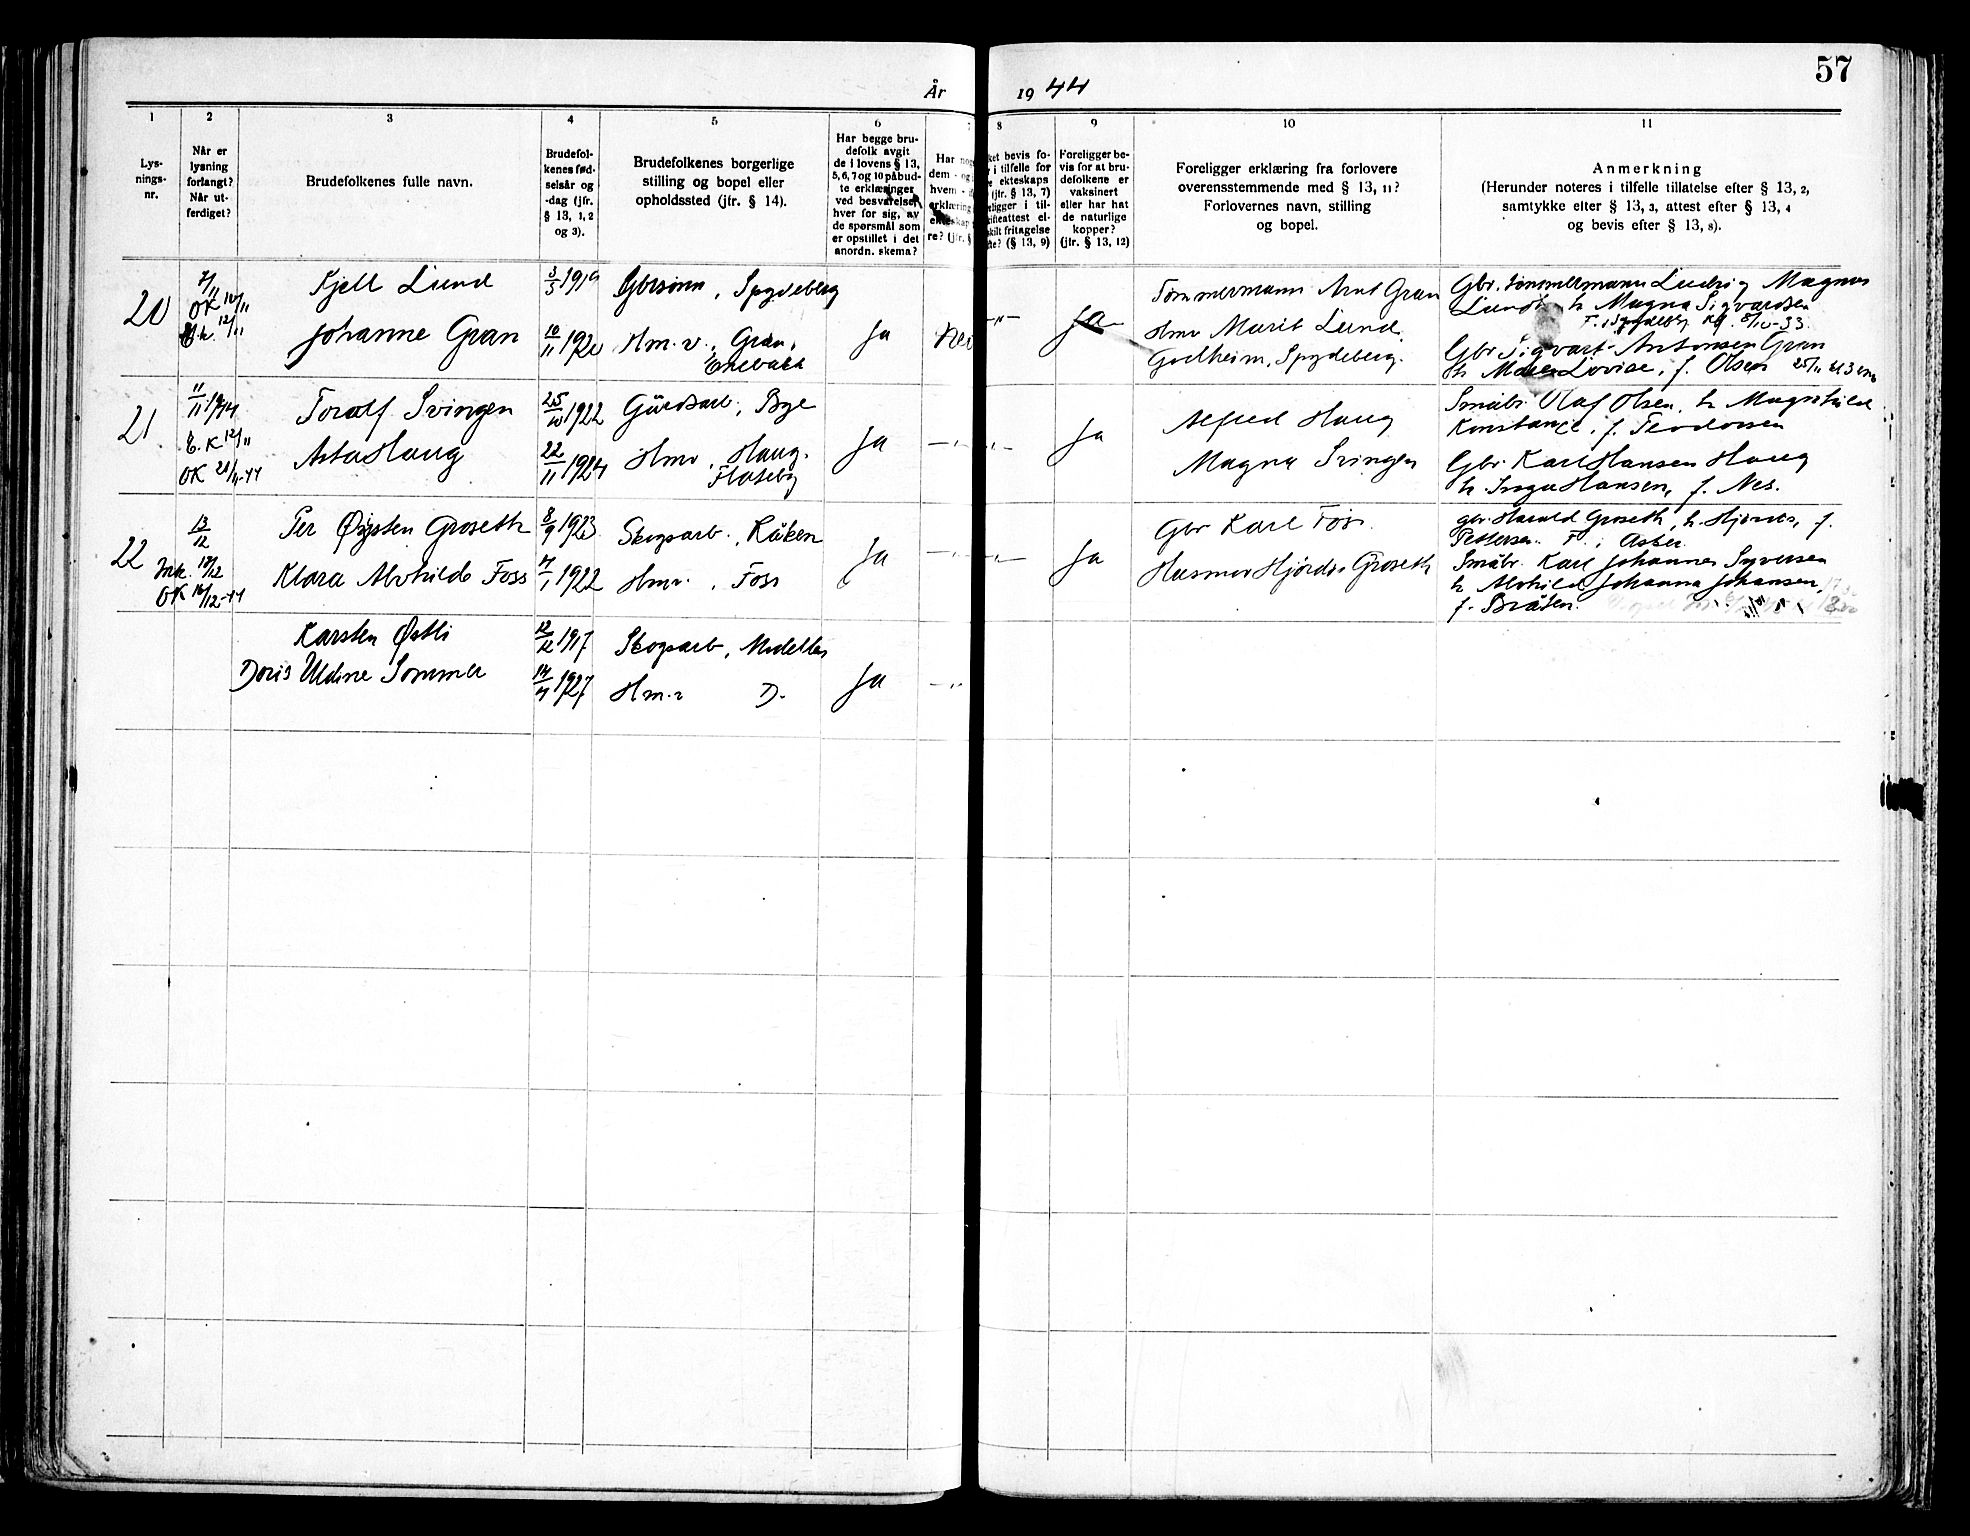 57
År 19 44
1 2 3 4 5 6 7 8 9 10 11
Lys-
nings-
nr.
Når er
lysning
forlangt?
Når ut-
ferdiget?
Brudefolkenes fulle navn.
Brudefol-
kenes fød-
selsår og
-dag (jfr.
§ 13, 1, 2
og 3).
Brudefolkenes borgerlige
stilling og bopel eller
opholdssted (jfr. § 14).
Har begge bru-
defolk avgit
de i lovens § 13,
5, 6, 7 og 10 påbud-
te erklæringer
ved besvarelsen
hver for sig, av
de spørsmål som
er opstillet i det
anordn. skema?
Har nog
dem - og
hvem -
erklæring
ekteskap
re? (jfr. §
ket bevis fo-
i tilfelle for
ekteskaps
(jfr. § 13, 7)
eligger i til-
skifteattest el-
skilt fritagelse
te? (§ 13, 9)
Foreligger be-
vis for at bru-
defolkene er
vaksinert
eller har hat
de naturlige
kopper?
(jfr. § 13, 12)
Foreligger erklæring fra forlovere
overensstemmende med § 13, 11?
Forlovernes navn, stilling
og bopel.
Anmerkning
(Herunder noteres i tilfelle tillatelse efter § 13, 2,
samtykke efter § 13, 3, attest efter § 13, 4
og bevis efter § 13, 8).
20
7/11
OK 12/11
12/11
Kjell Lund
Johanne Gran
3/3 1919
10/11 1920
Gbrsønn, Spydeberg
Hm.v., Gran,
Enebakk
Ja
Nei
-"-
Ja
Tømmermann Arnt Gran
Hmv Marit Lund
Godheim, Spydeberg.
Gbr. tømmermann Ludvig Magnus
Lund h. Magna Sigvardsen
F. i Spydeberg Kg. 8/10-33.
Gbr. Sigvart Antonsen Gran
h. Maren Lovise, f. Olsen 25/11
21
11/11 1944
E. K 12/11
OK 21/11-44
Toralf Svingen
Asta Haug
25/10 1922
22/11 1924
Gårdsarb., Bye
Hmv, Haug.
Flateby
Ja
-"-
-"-
Ja
Alfred Haug
Magna Svingen
Småbr. Olaf Olsen, h. Magnhild
Konstance, f. Teodorsen
Gbr. Karl Hansen Haug
h. Inga Hansen, f. Nes.
22
13/12
Ink. 13/12
OK 16/12-44
Per Øysten Groseth
Klara Alvhilde Foss
8/9 1923
1922
Skogsarb., Råken
Hmv., Foss
Ja
-"-
-"-
Ja
Gbr Karl Foss.
Husmor Hjørdis Groseth
gbr. Harald Groseth, h. Hjørdis, f.
Pettersen. F. i Asker.
Småbr. Karl Johannes Syversen
h. Alvhild Johanna Johansen,
f. Bråten.
Karsten Østli
Doris Uldine Sommer
12/12 1917
1927
Skogsarb,
Hm.v D.
Ja
-"-